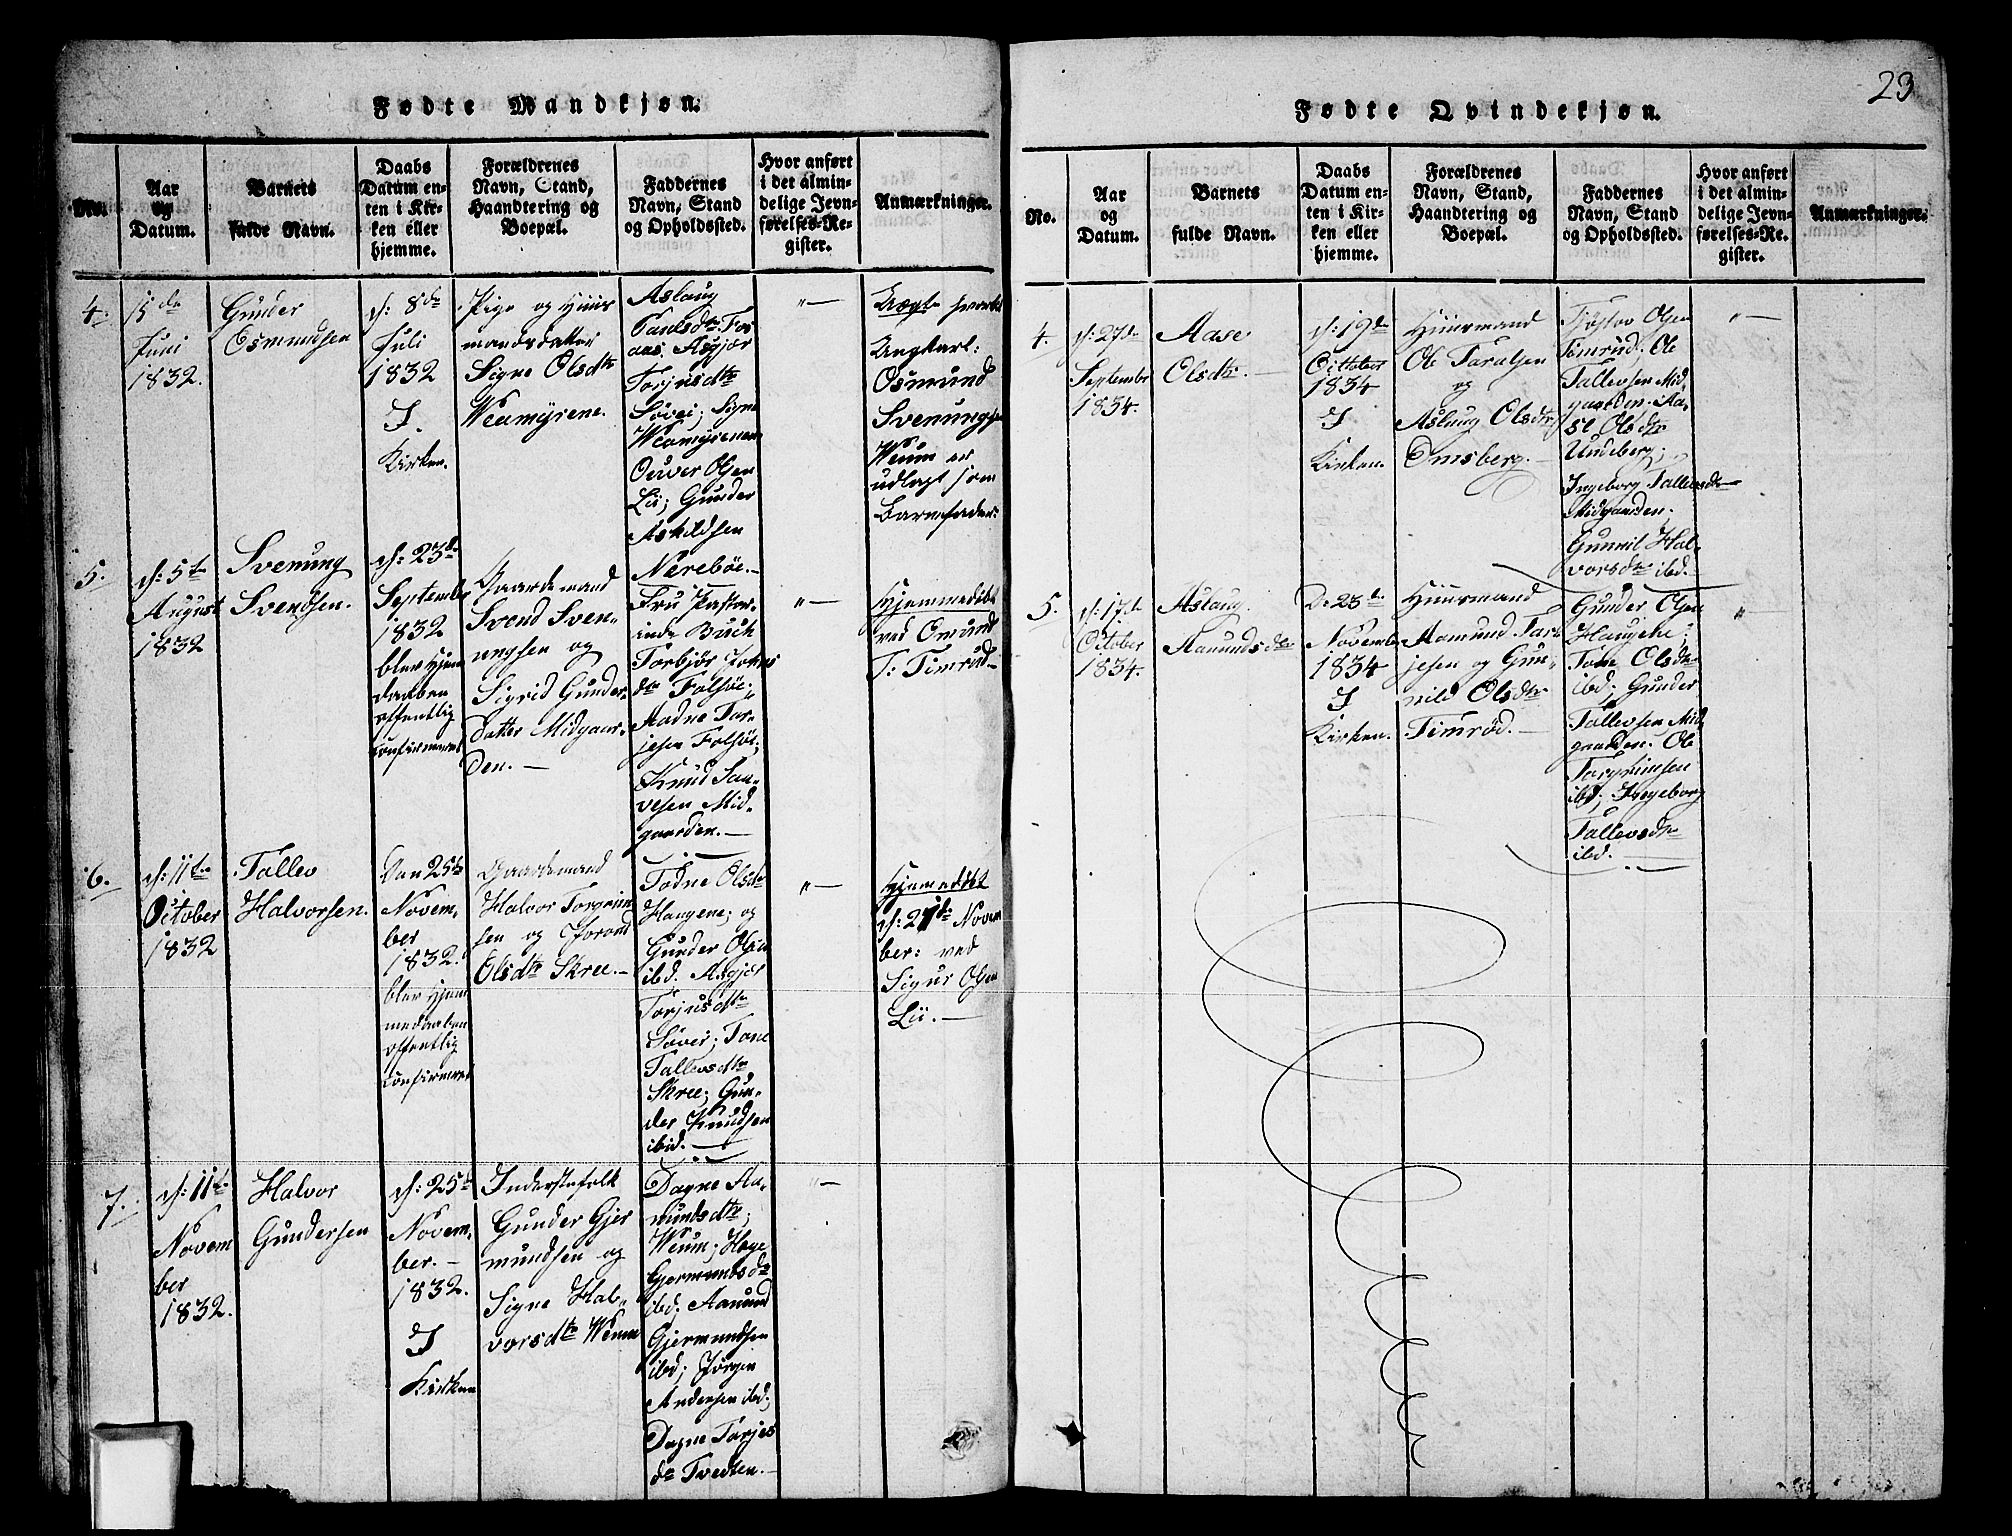 23
Fødte Mandkjøn.
No.
Aar
og
Datum.
Barnets
fulde Navn.
Daabs
Datum en-
ten i Kir-
ken eller
hjemme.
Forældrenes
Navn, Stand,
Haandtering og
Boepæl.
Faddernes
Navn, Stand
og Opholdssted.
Hvor anført
i det almin-
delige Jevn-
førelses-Re-
gister.
Anmærkninger.
4.
Juni
1832.
Gunder
Osmundsen
d: 8de
Juli
1832
I
Kirken.
Pige og Huus
mandsdatter
Signe Olsdtr
Weamyrene.
Aslaug
Paulsdtr.
Asgjær
Torjusdtr
Søvei; Signe
Weamyrene
Ouver Olsen
Lii; Gunder
Askildsen
Nerebøe.
"—
Uægte
Ungkarl:
Osmund
Svenungsen
Weum er
udlagt som
Barnefader.
5.
d: 5te
August
1832
Svenung
Svendsen.
d: 23de
Septembr
1832
blev hjem
daaben
offentlig
confirmeret
Gaardemand
Svend Sven-
ungsen og
Sigrid Gunder-
datter Midgaar-
den. —
Fru Pastor-
inde Buch
Torbjør Johns
dtr Folsøe;
Aadne Tar-
jesen Folsøe;
Knud Saa-
vesen Mid-
gaarden. —
"—
Hjemmedøbt
ved Omund
T: Timrud—
6.
d: 11te
October
1832
Tallev
Halvorsen.
Den 25de
Novem-
ber
1832.
blev Hjem
medaaben
offentlig
confirmeret
Gaardemand
Halvor Torgrim
sen og
Olsdtr Skree.—
Todne Olsdtr
Haugene; og
Gunder Olsen
ibd. Asgjær
Torjusdtr
Søvei; Tone
Tallevsdtr
Skree; Gun-
der Knudsen
ibid. —
"—
Hjemedøbt
Novem
ber: ved
Sigur Olsen
Lii. —
7.
d: 11te
Novem
ber
1832.
Halvor
Gundersen
d: 25de
Novem-
ber. —
1832.
I
Kirken
Inderstefolk
Gunder Gjer
mundsen og
Signe Hal-
vorsdtr Weum
Dagne Aa-
mundsdtr;
Weum; Hæge
Gjermundsdr
ibd; Aamund
Gjermundsen
ibd; Jørgen
Andersen ibd;
Dagne Tarjes
dr Tvedten. —
"—
Fødte Qvindekjøn.
No.
Aar
og
Datum.
Barnets
fulde Navn.
Daabs
Datum en-
ten i Kir-
ken eller
hjemme.
Forældrenes
Navn, Stand,
Haandtering og
Boepæl.
Faddernes
Navn, Stand
og Opholdssted.
Hvor anført
i det almin-
delige Jevn-
førelses-Re-
gister.
Anmærkninger.
4.
d: 27de
Septembr
1834.
Aase
Olsdtr. —
d: 19de
October
1834
I
Kirken.
Huusmand
Ole Taralsen
og
Aslaug Olsdtr
Omsberg. —
Tjøstov Olsen
Timrud. Ole
Tallevsen Mid-
gaarden. Aa-
se Olsdtr
Undeberg;
Ingeborg Tallevsdtr
Midgaarden.
Gunnil Hal-
vorsdtr ibd.
"—
5.
d: 17de
October
1834.
Aslaug
Aamundsdtr
De 23de
Novembr
1834
I
Kirken.
Huusmand
Aamund Tar
jesen og Gun-
nild Olsdtr
Timrød. —
Gunder Olsen
Haugene;
Tone Olsdtr
ibd; Gunder
Tallevsen Mid
gaarden. Ole
Torgrimsen
ibd; Ingeborg
Tallevsdtr
ibd. —
"—